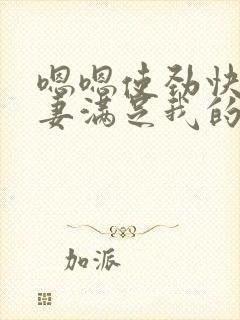 嗯嗯使劲快
妻满足我的
加派